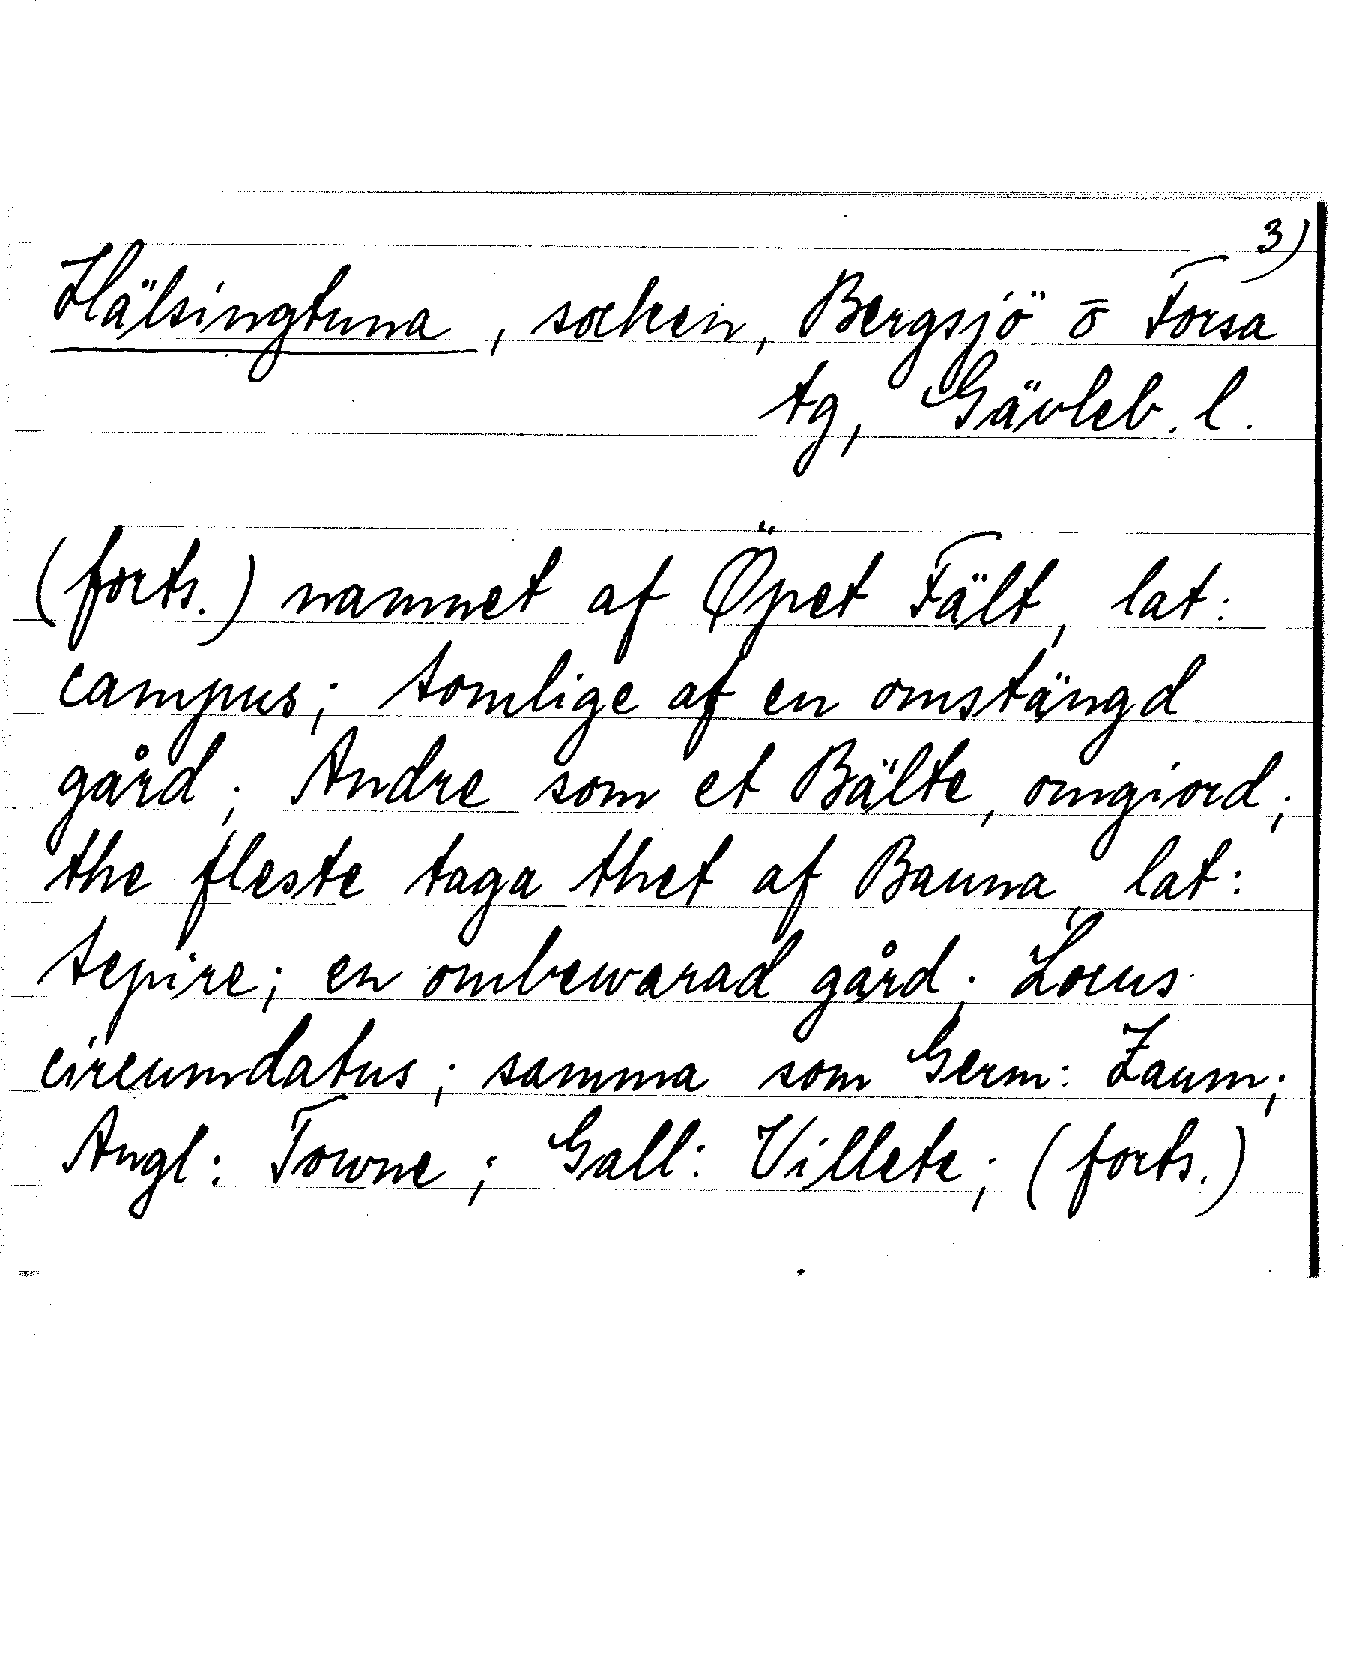 3)
Hälsingtuna, socken, Bergsjö ō Forsa
tg, Gävleb. l.
(forts.) namnet af Öpet Fält, lat:
campus; somlige af en omstängd
gård; Andre som et Bälte, omgiord;
the fleste taga thet af Bauna, lat:
sepire; en ombewarad gård; Locus
circumdatus; samma som Germ: Zaum;
Angl: Towne; Gall: Villete; (forts.)